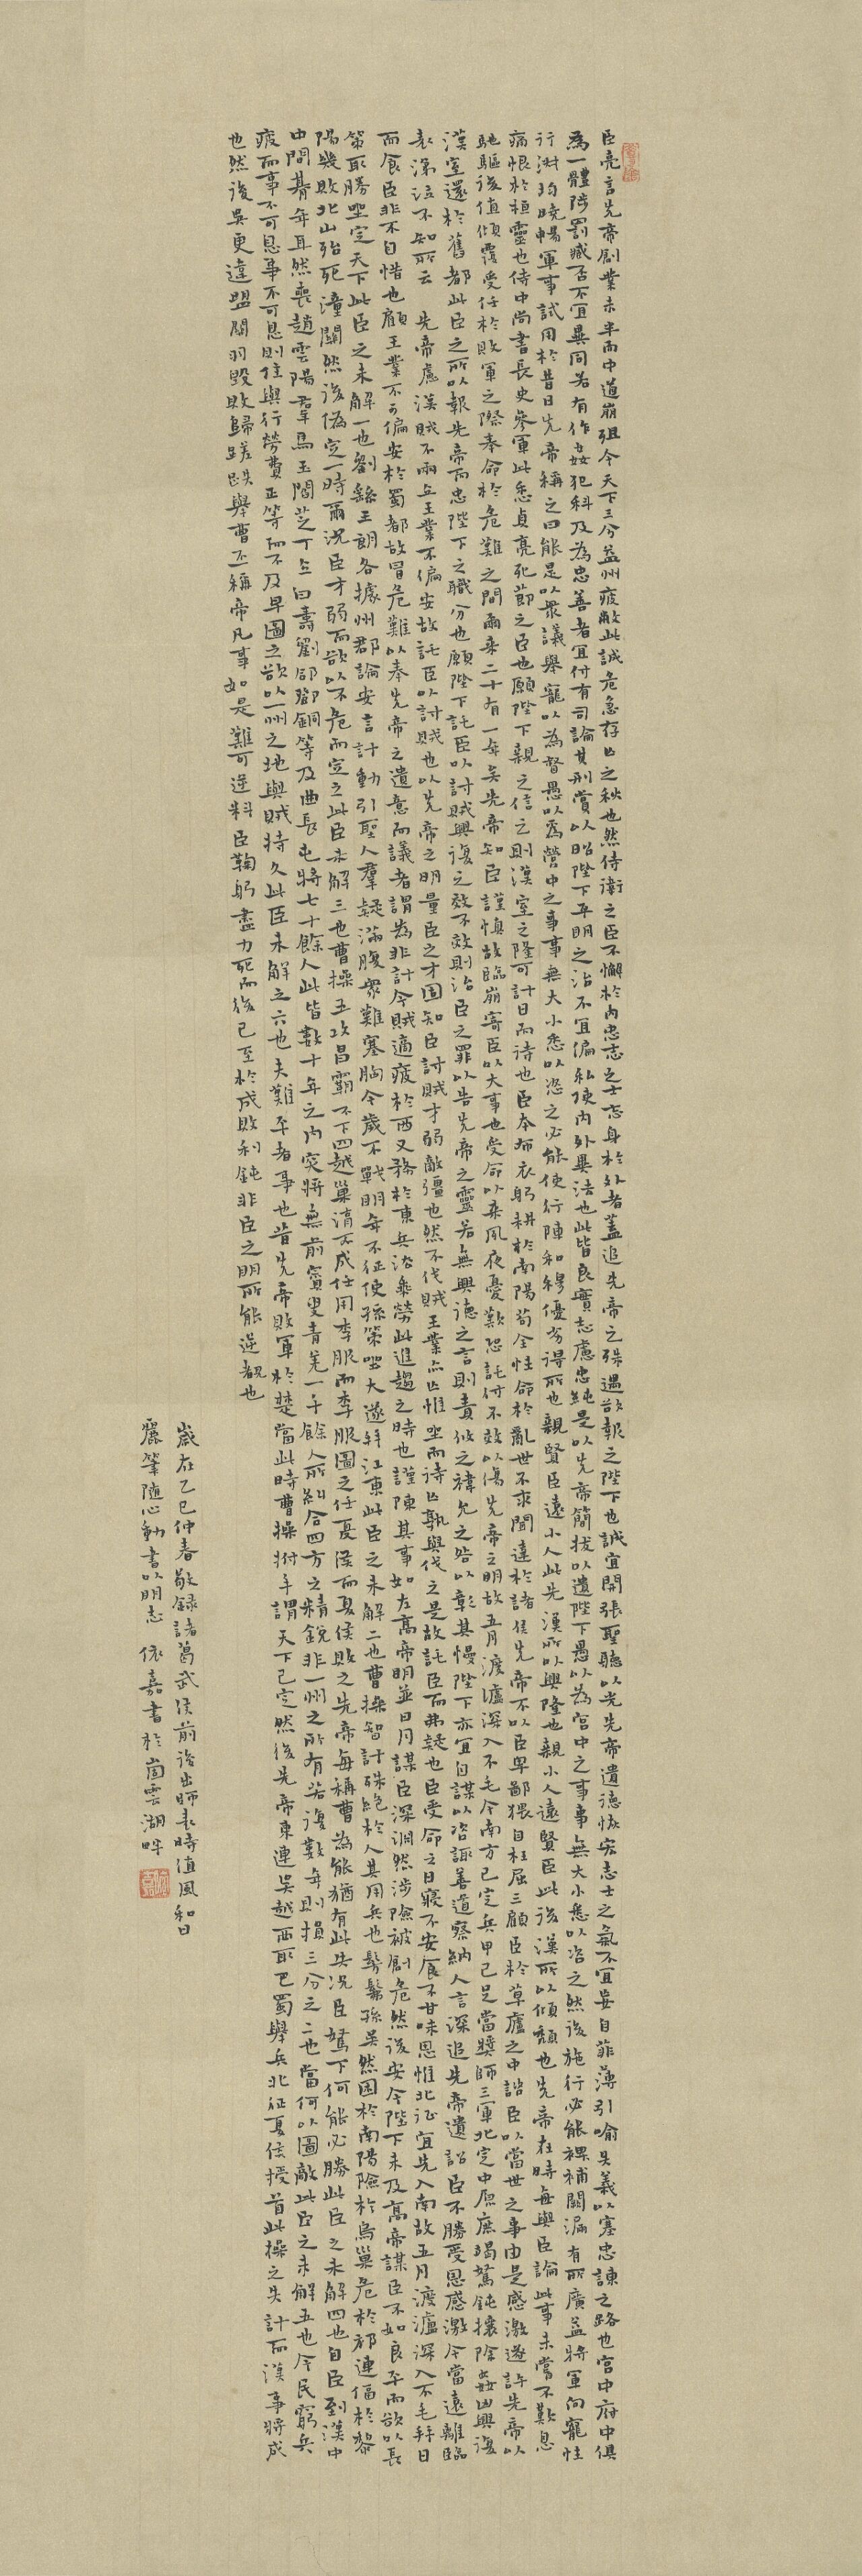 臣亮言先帝創業未半而中道崩殂今天下三分益州疲敝此誠危急存亡之秋也然侍衛之臣不懈於內忠志之士忘身於外者蓋追先帝之殊遇欲報之陛下也誠宜開張聖聽以光先帝遺德恢宏志士之氣不宜妄自菲薄引喻失義以塞忠諫之路也宮中府中俱
為一體陟罰臧否不宜異同若有作姦犯科及為忠善者宜付有司論其刑賞以昭陛下平明之治不宜偏私使內外異法也此皆良實志慮忠純是以先帝簡拔以遺陛下愚以為宮中之事事無大小悉以咨之然後施行必能裨補闕漏有所廣益將軍向寵性
行淑均曉暢軍事試用於昔日先帝稱之曰能是以衆議舉寵以為督愚以為營中之事事無大小悉以咨之必能使行陣和穆優劣得所也親賢臣遠小人此先漢所以興隆也親小人遠賢臣此後漢所以傾頹也先帝在時每與臣論此事未嘗不歎息
痛恨於桓靈也侍中尚書長史參軍此悉貞亮死節之臣也願陛下親之信之則漢室之隆可計日而待也臣本布衣躬耕於南陽苟全性命於亂世不求聞達於諸侯先帝不以臣卑鄙猥自枉屈三顧臣於草廬之中諮臣以當世之事由是感激遂許先帝以
馳驅後值傾覆受任於敗軍之際奉命於危難之間爾來二十有一年矣先帝知臣謹慎故臨崩寄臣以大事也受命以來夙夜憂歎恐託付不效以傷先帝之明故五月渡瀘深入不毛今南方已定兵甲已足當獎師三軍北定中原庶竭駑鈍攘除姦凶興復
漢室還於舊都此臣之所以報先帝而忠陛下之職分也願陛下託臣以討賊興復之效不效則治臣之罪以告先帝之靈若無興德之言則責攸之禕允之咎以彰其慢陛下亦宜自謀以咨諏善道察納人言深追先帝遺詔臣不勝受恩感激今當遠離臨
表涕泣不知所云　先帝慮漢賊不兩立王業不偏安故託臣以討賊也以先帝之明量臣之才固知臣討賊才弱敵彊也然不伐賊王業亦亡惟坐而待亡孰與伐之是故託臣而弗疑也臣受命之日寢不安食不甘味思惟北征宜先入南故五月渡瀘深入不毛并日
而食臣非不自惜也顧王業不可偏安於蜀都故冒危難以奉先帝之遺意而議者謂為非計今賊適疲於西又務於東兵法乘勞此進趨之時也謹陳其事如左高帝明並日月謀臣深淵然涉險被創危然後安今陛下未及高帝謀臣不如良平而欲以長
策取勝坐定天下此臣之未解一也劉繇王朗各據州郡論安言計動引聖人羣疑滿腹衆難塞胸今歲不戰明年不征使孫策坐大遂并江東此臣之未解二也曹操智計殊絕於人其用兵也髣髴孫吳然困於南陽險於烏巢危於祁連偪於黎
陽幾敗北山殆死潼關然後偽定一時爾況臣才弱而欲以不危而定之此臣未解三也曹操五攻昌霸不下四越巢湖不成任用李服而李服圖之任夏侯而夏侯敗之先帝每稱曹為能猶有此失況臣駑下何能必勝此臣之未解四也自臣到漢中
中間朞年耳然喪趙雲陽羣馬玉閻芝丁立白壽劉郃鄧銅等及曲長屯將七十餘人此皆數十年之內突將無前賨叟青羌一千餘人所糾合四方之精銳非一州之所有若復數年則損三分之二也當何以圖敵此臣之未解五也今民窮兵
疲而事不可息事不可息則住與行勞費正等而不及早圖之欲以一州之地與賊持久此臣未解之六也夫難平者事也昔先帝敗軍於楚當此時曹操拊手謂天下已定然後先帝東連吳越西取巴蜀舉兵北征夏侯授首此操之失計而漢事將成
也然後吳更違盟關羽毀敗歸蹉跌舉曹丕稱帝凡事如是難可逆料臣鞠躬盡力死而後已至於成敗利鈍非臣之明所能逆覩也
歲在乙巳仲春敬錄諸葛武侯前後出師表時值風和日
麗筆隨心動書以明志　依嘉書於雲湖畔